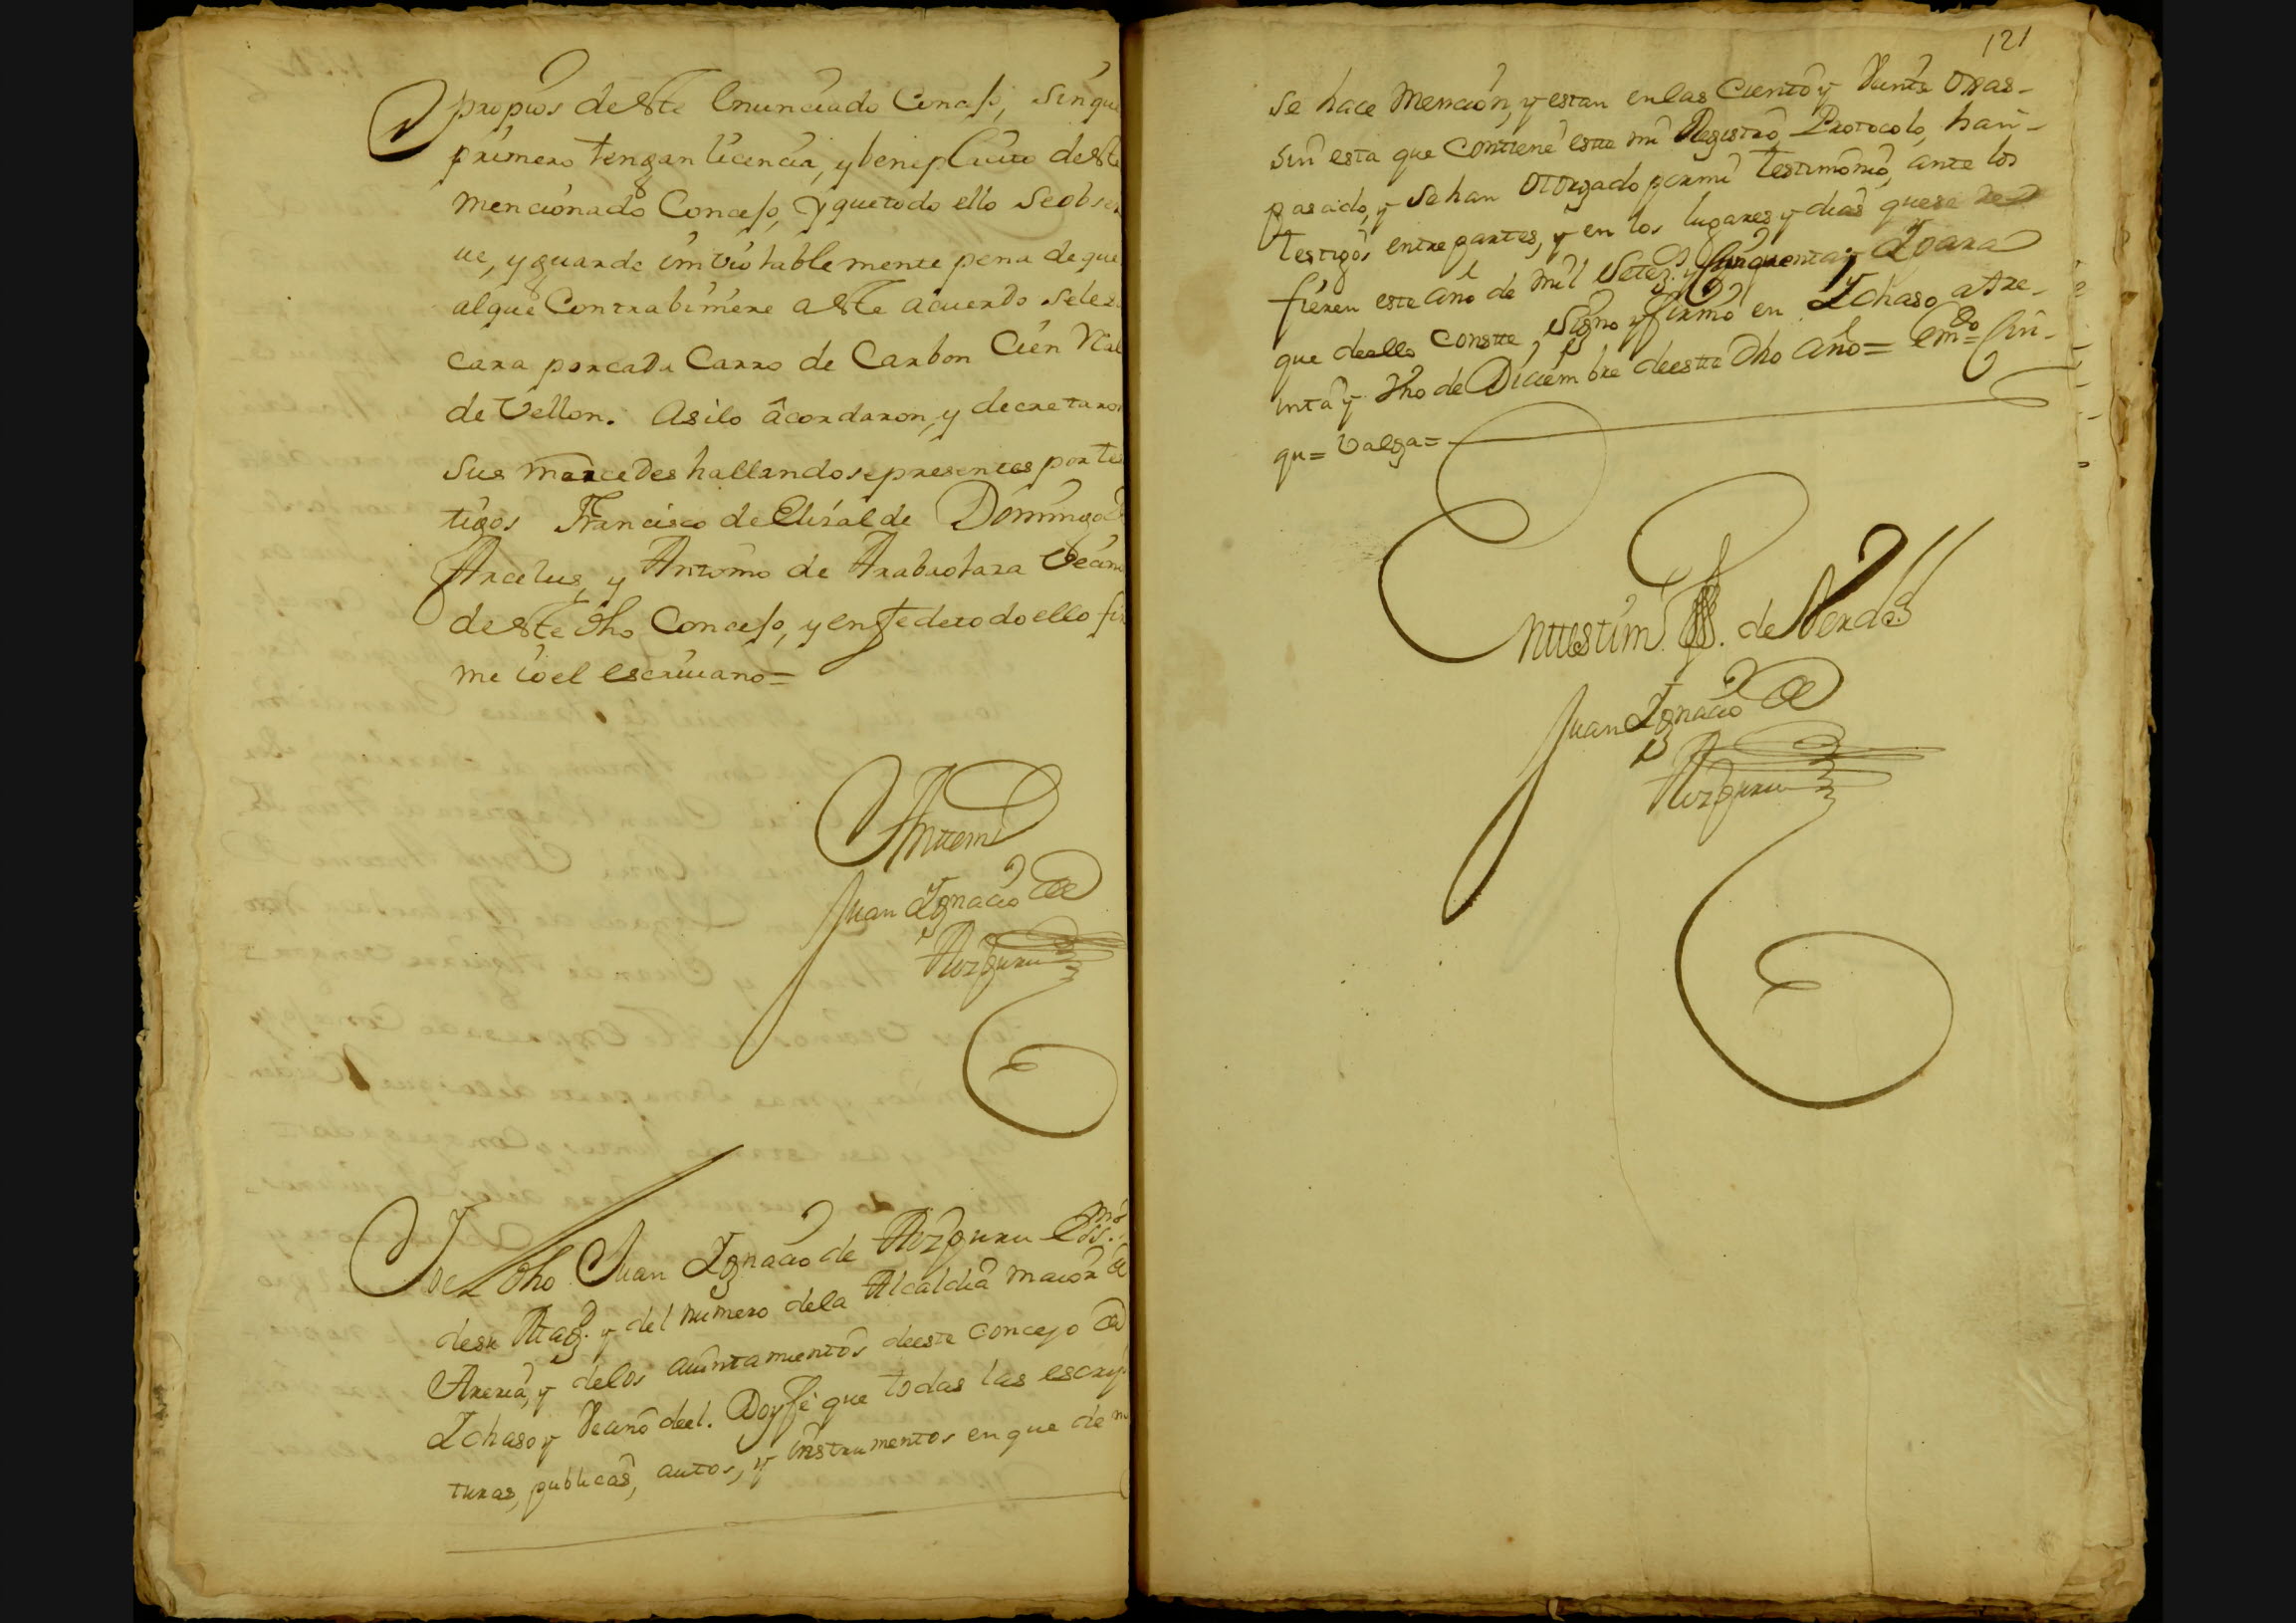 propios deste enunciado Concejo, sin que
primero tengan licencia, y beneplacito deste
mencionado Concejo, y que todo ello se obser
ue, y guarde imbiolablemente pena de que
al que Contrabiniere a este acuerdo se le sa
cara por cada Carro de Carbon Cien Real
de Vellon. Asi lo acordaron, y decretaron
Sus mercedes hallandose presentes por tes
tigos Francisco de Elizalde Domingo de
Arcelus, y Antonio de Arabiolaza Vecino
deste dho Concejo, y en fe de todo ello fir
me io el escriuano=
Anttemi
Juan Ignacio de
Aizpuru
Io el dho Juan Ignacio de Aizpuru Essno
de su Mag. y del numero de la Alcaldia maior de
Areria, y de los aiuntamientos de este concejo de
Ichaso y Vecino de el. Doy fe que todas las escrip
turas, publicas, autos, y instrumentos en que de m
121
se hace Mencion, y estan en las Ciento y Veinte Oxas
sin esta que Contiene este mi Registro Protocolo, han
pasado, y se han Otorgado por mi testimonio, ante los
testigos entre partes, y en los lugares y dias que se re
fieren este año de mil Setez. y Cinquenta y Ipara
que de ello Constte, Signo y firmo en Ichaso a tre
inta y Iho de Diciembre de este dho Año= Emdo= Cin
qu= Valga=
En ttestim. de Verdad
Juan Ignacio de
Aizpuru